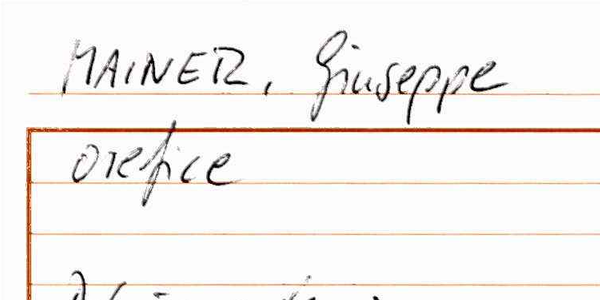 MAINER, Giuseppe
orefice